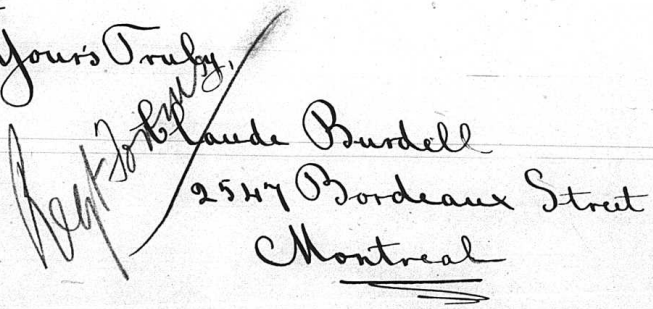 Yours Truly,
Claude Burdell
2547 Bordeaux Street
Montreal